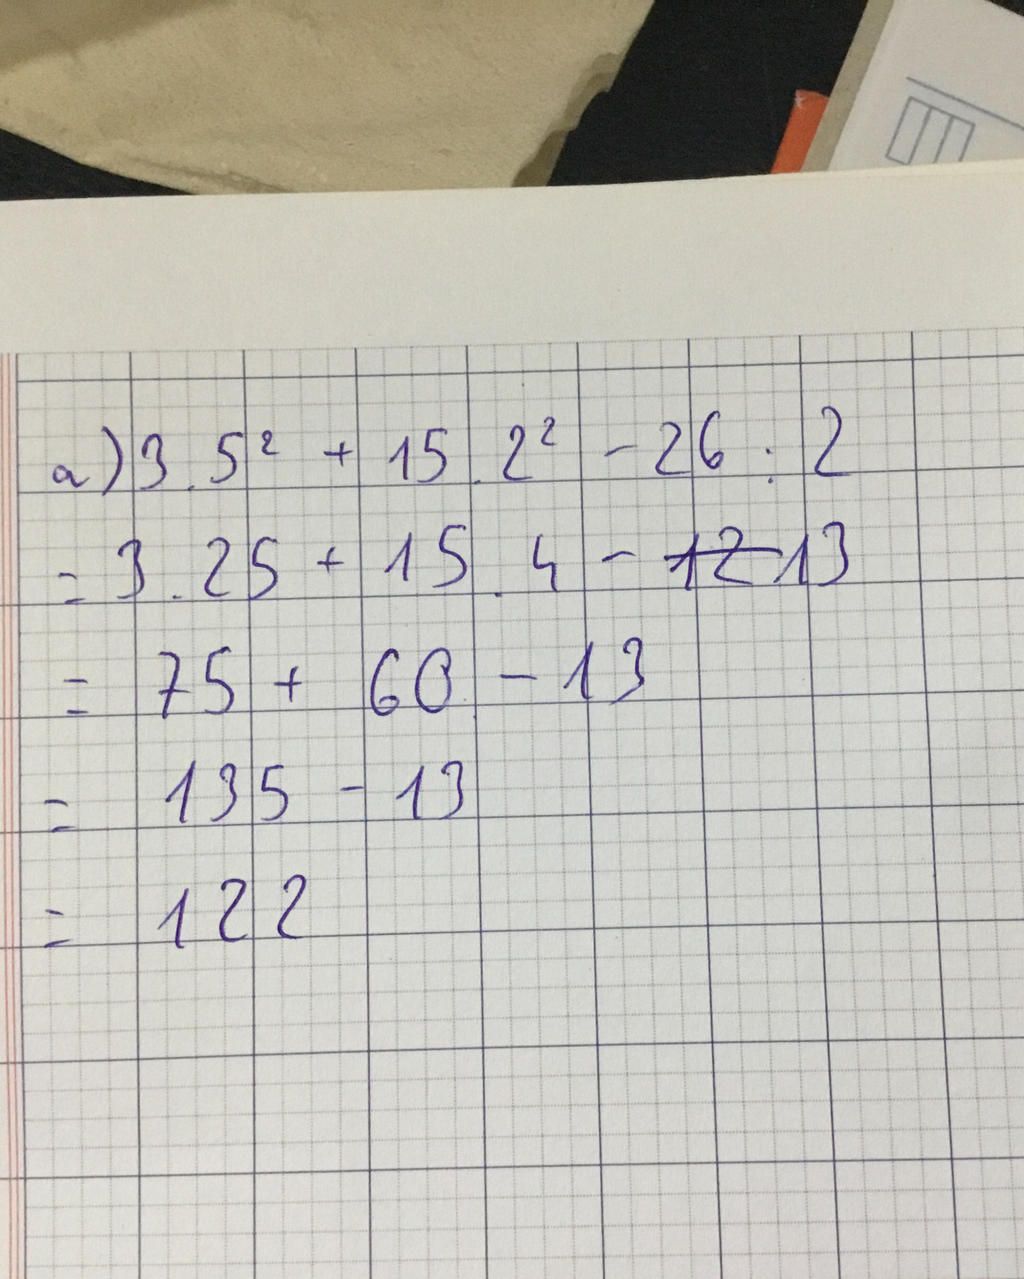 a) 3.5² + 15.2² - 26:2
= 3.25 + 15.4 - 12 13
= 75 + 60 - 13
= 135 - 13
= 122